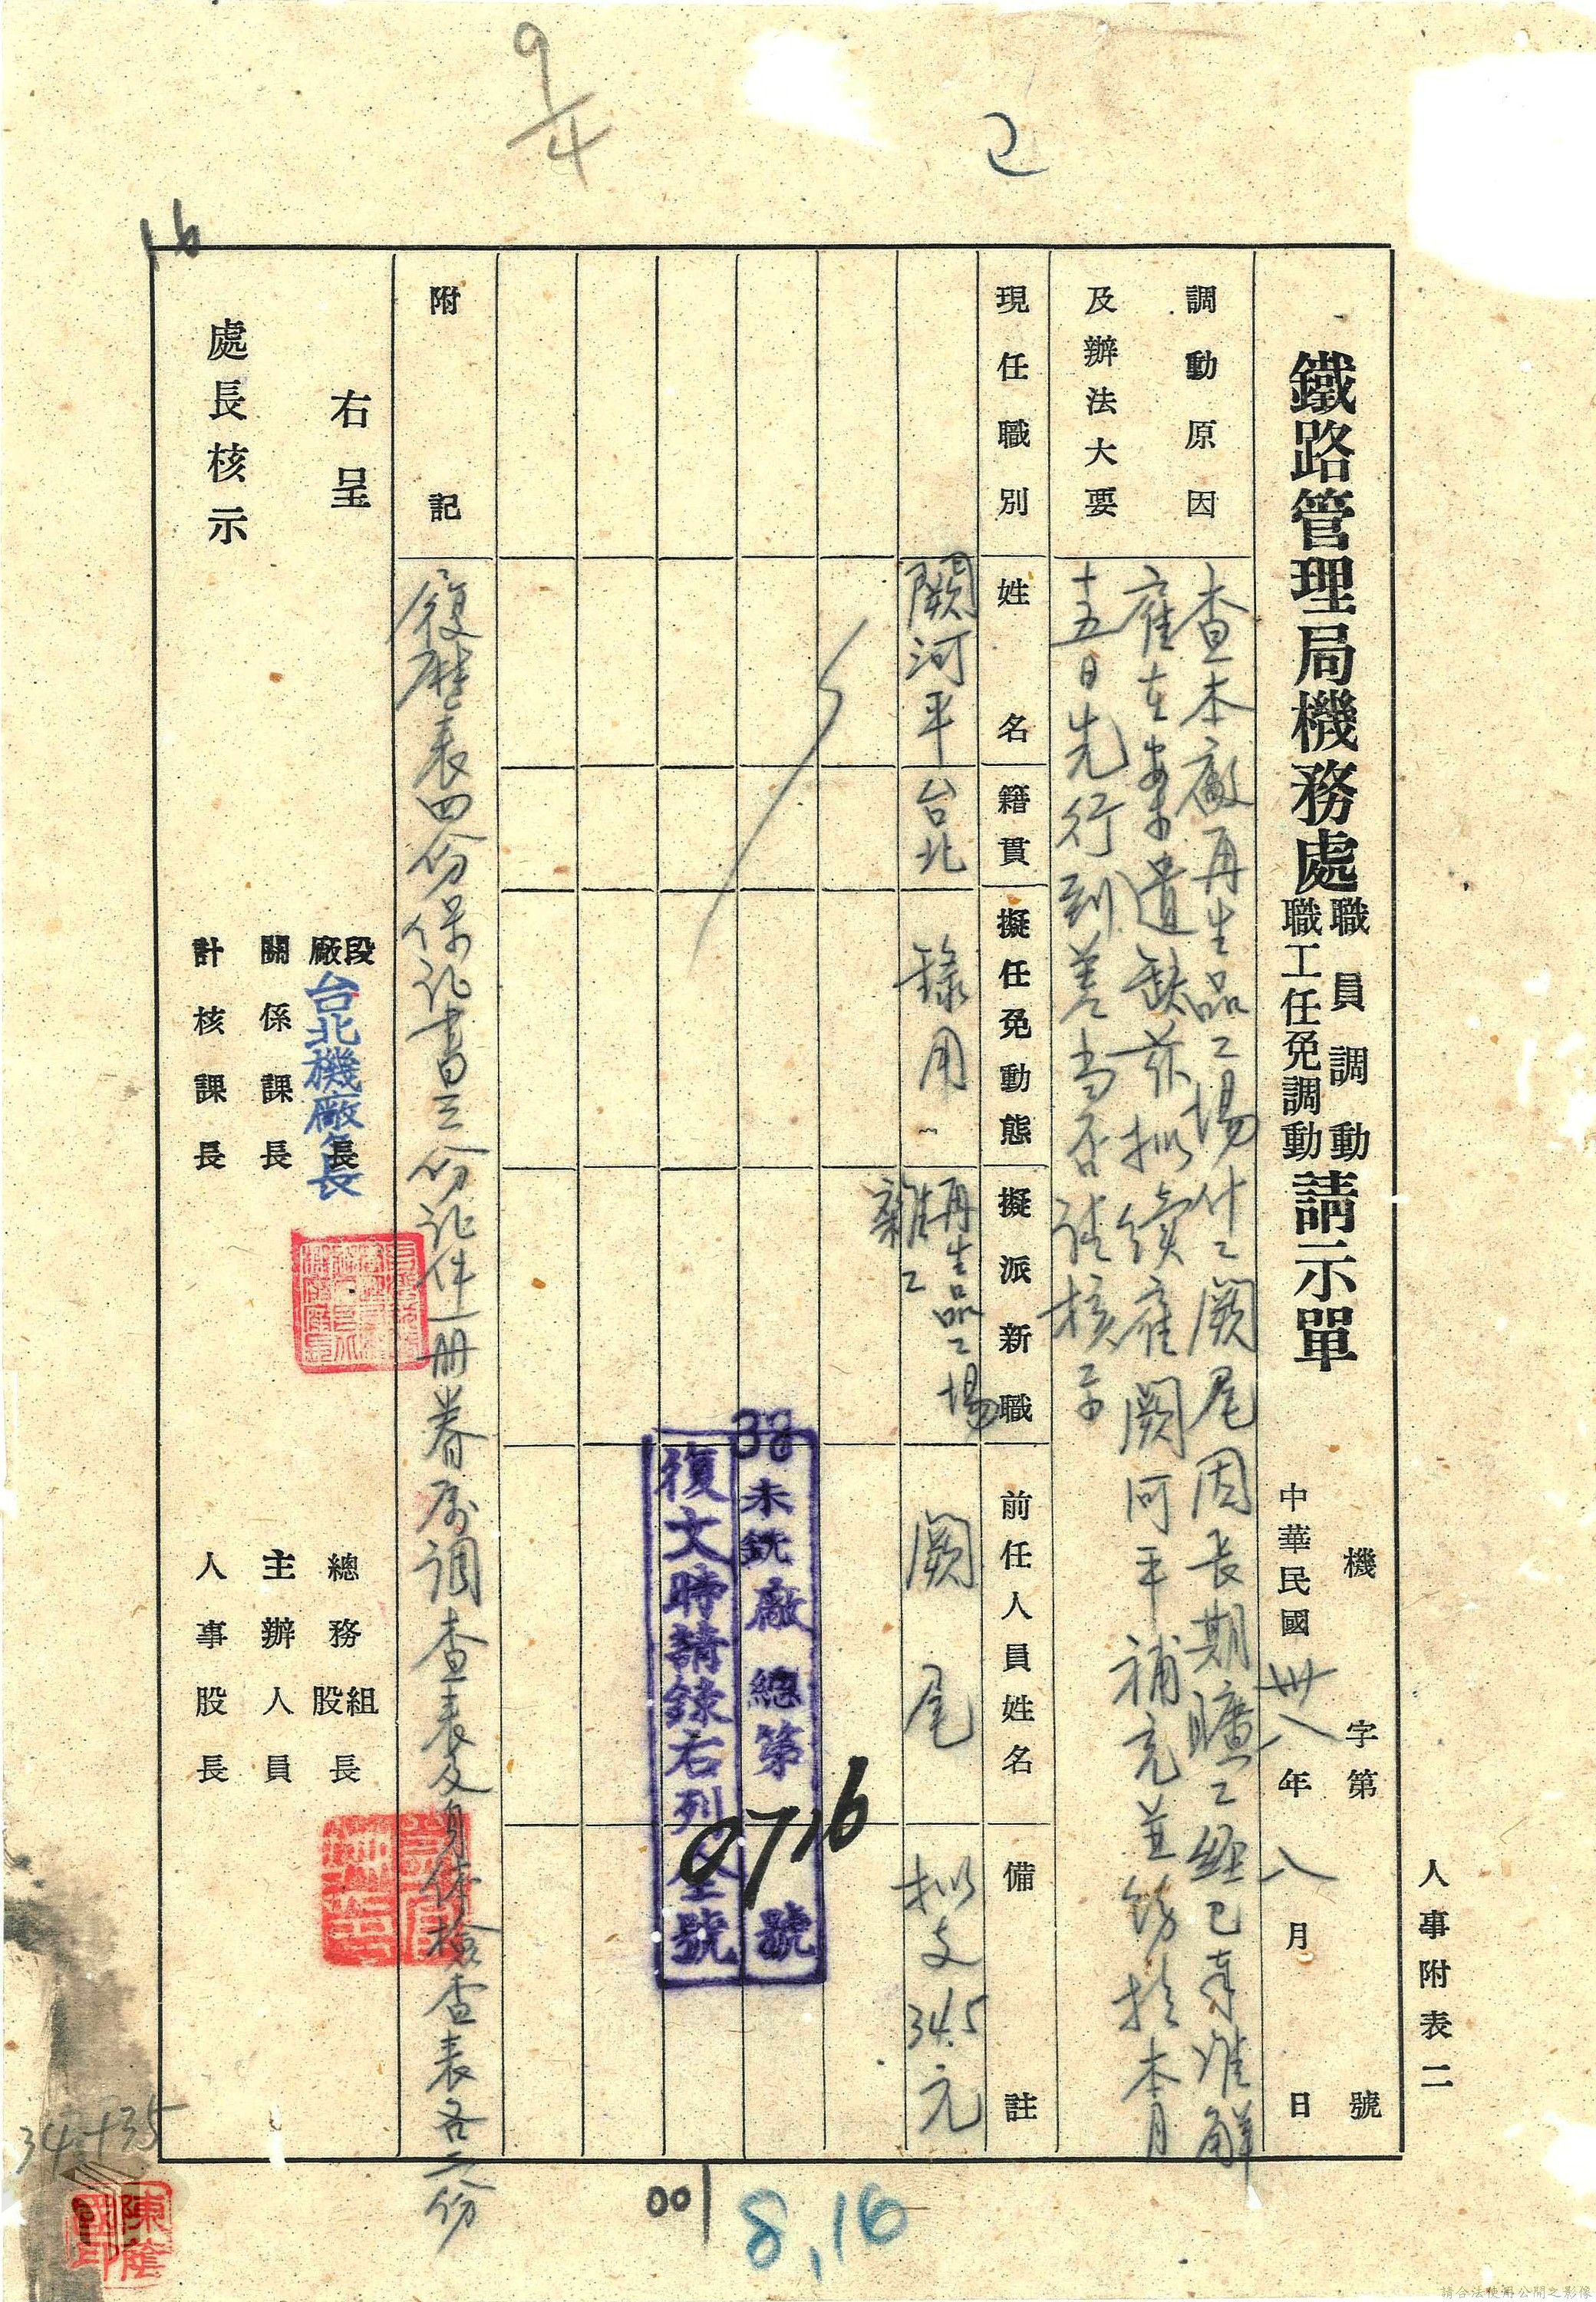 人事附表二
鐵路管理局機務處職員調動職工任免調動請示單
機字第號
中華民國卅八年八月日
調動原因及辦法大要
查本廠再生品工場什工闕尾因長期曠工經已奉准解
雇在案遺缺茲擬續雇闕河平補充並飭於本月
十五日先行到差當否請核示
現任職別
姓名
籍貫
擬任免動態
擬派新職
前任人員姓名
備註
闕河平
台北
錄用
再生品工場
雜工
闕尾
擬支345元
38未銑廠總第0716號
復文時請錄右列全號
附記
履歷表四份保証書三份証件一冊眷屬調查表及身体檢查表各三份
右呈
處長核示
廠段長
台北機廠長
關係課長
計核課長
總務股組長
主辦人員
人事股長
9/4
16
34+35
陳蔭國印
001
8,16
請合法使用公開之影像